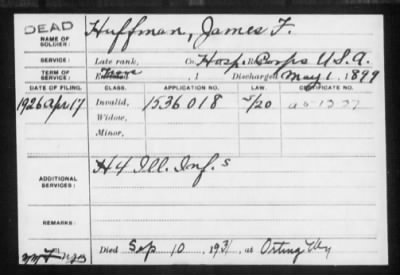 DEAD
NAME OF SOLDIER: Huffman, James F.
SERVICE: Late rank, Co. Hosp. Corps U.S.A.
TERM OF SERVICE: Enlisted , 1 Discharged May 1, 1899
DATE OF FILING. CLASS. APPLICATION NO. LAW. CERTIFICATE NO.
1926 Apr 17 Invalid, 1536018 5/20
Widow,
Minor,
ADDITIONAL SERVICES: H 4 Ill. Inf. s
REMARKS:
Died Sep 10, 1931, at Orting